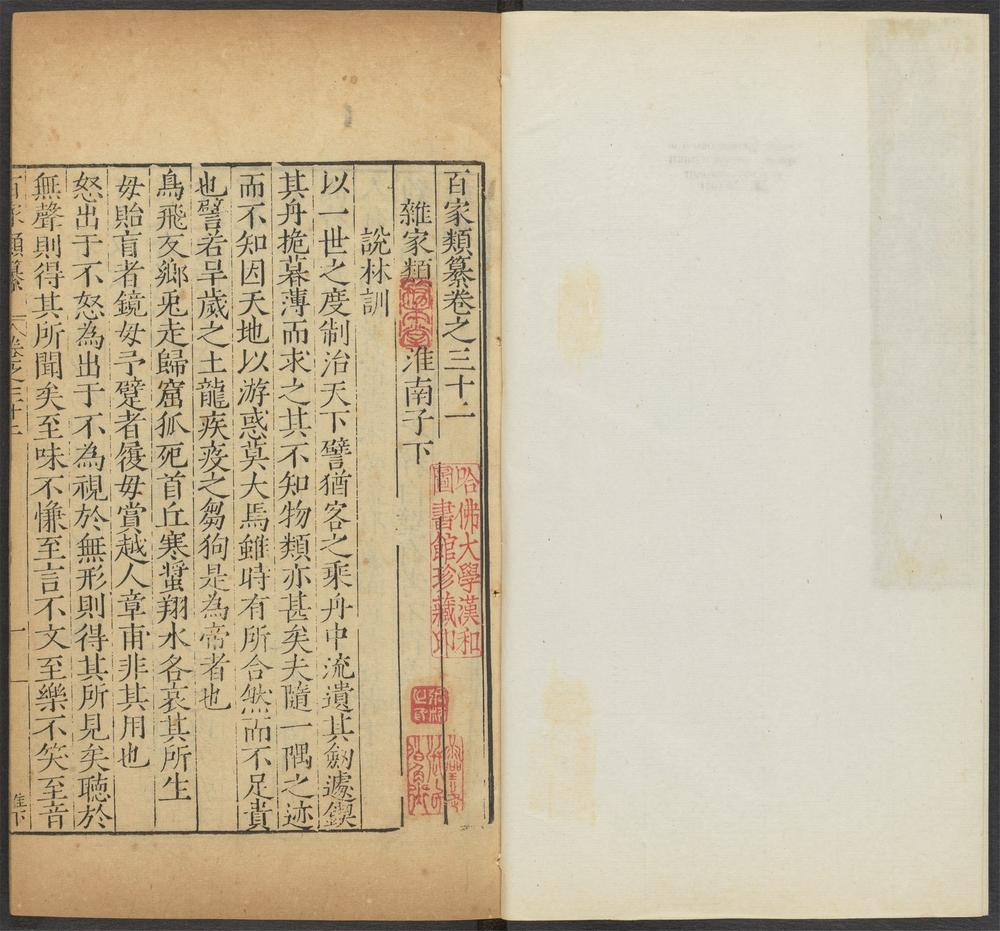 百家類纂卷之三十二
雜家類 淮南子下
說林訓
以一世之度制治天下譬猶客之乘舟中流遺其劔遽鍥
其舟桅暮薄而求之其不知物類亦甚矣夫隨一隅之迹
而不知因天地以游惑莫大焉雖時有所合然而不足貴
也譬若旱歲之土龍疾疫之芻狗是為帝者也
鳥飛反鄉兎走歸窟狐死首丘寒螿翔水各哀其所生
毋貽盲者鏡毋予躄者履毋賞越人章甫非其用也
怒出于不怒為出于不為視於無形則得其所見矣聽於
無聲則得其所聞矣至味不慊至言不文至樂不笑至音
百家類纂 卷之三十二 一 淮下
哈佛大學漢和
圖書館珍藏印